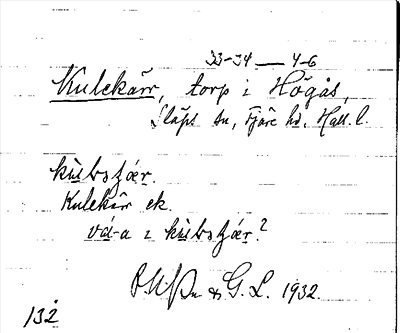 33-34 — 4-6
Kulekärr, torp i Högås,
Släps sn, Fjäre hd, Hall. l.
kùbsʃær.
Kulekärr ek.
vá-a ɪ kùbsʃær?
& G. L. 1932.
132